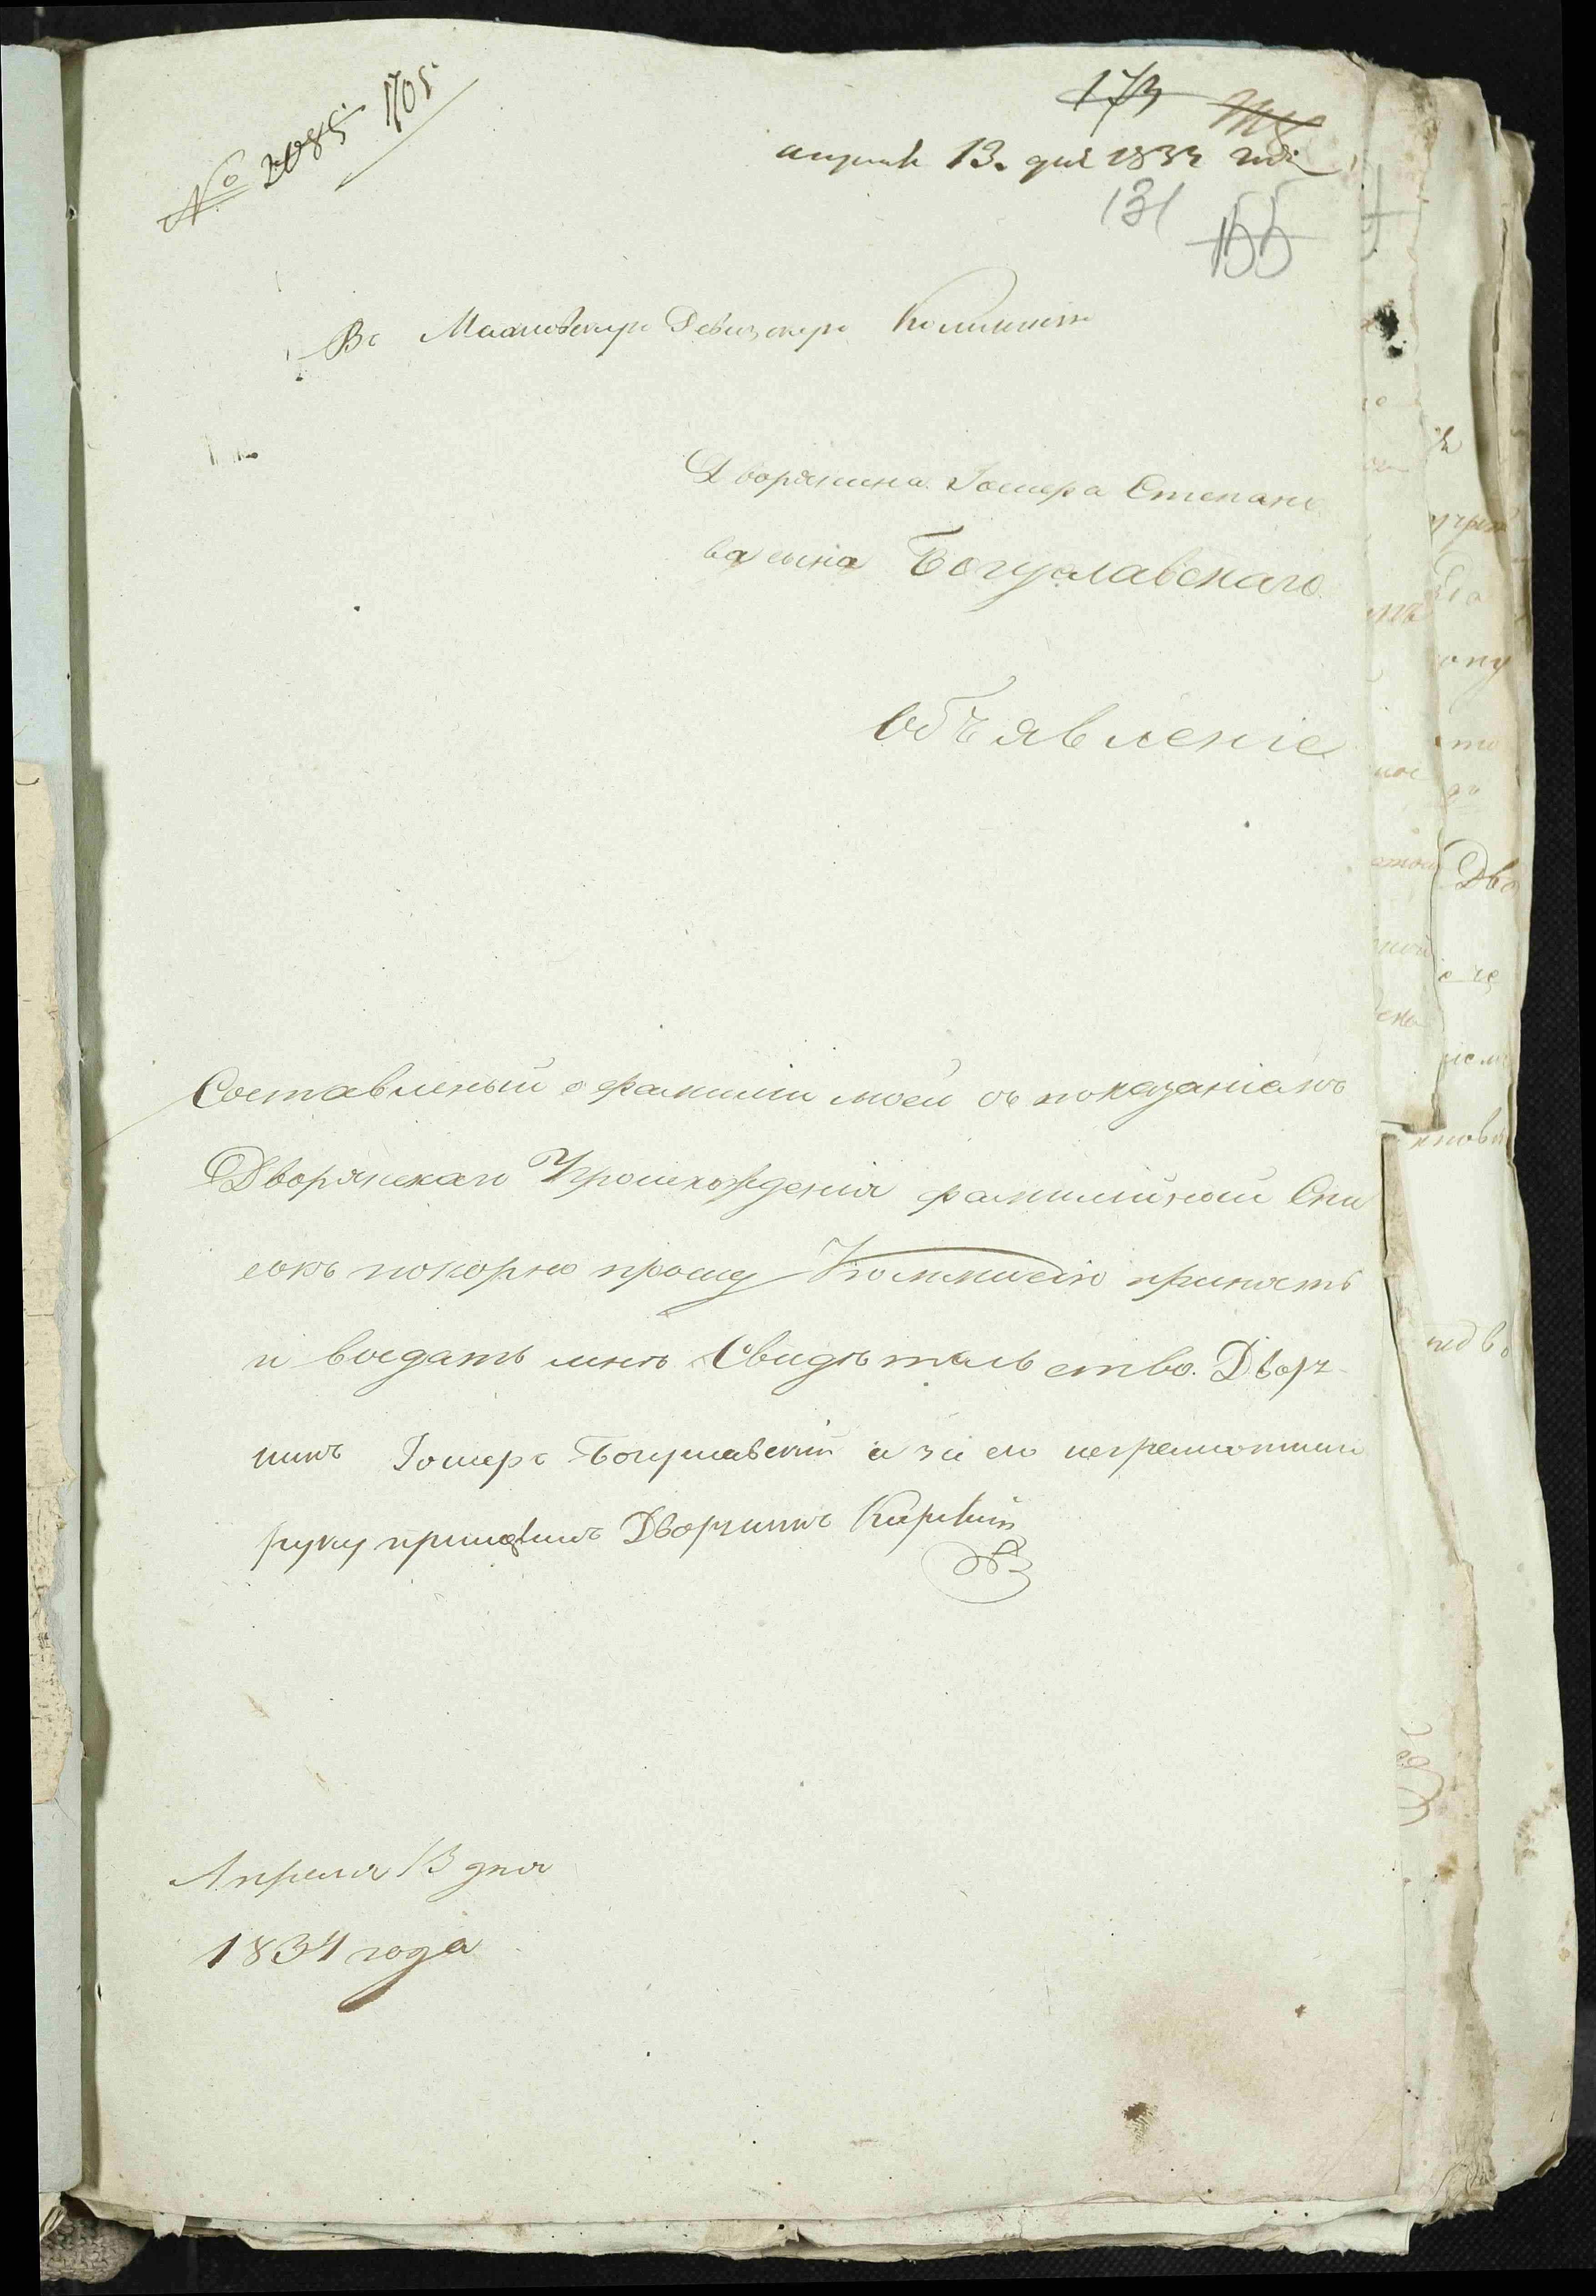 № 2085 1105
173
апреля 13. дня 1834 года
131 155
Въ Махновскую Ревизскую Коммисію
Дворянина Іосифа Степано
ва сына Богуславскаго
Объявленіе
Составленый о фамиліи моей съ показаніямъ
Дворянскаго Происхожденія фамилійный Спи
сокъ покорно прошу Коммисію принять
и выдать мнѣ Свидѣтельство. Двор
нинъ Іосифъ Богуславскій а за его неграмотнаго
руку приложилъ Дворянинъ
Апреля 13 дня
1834 года